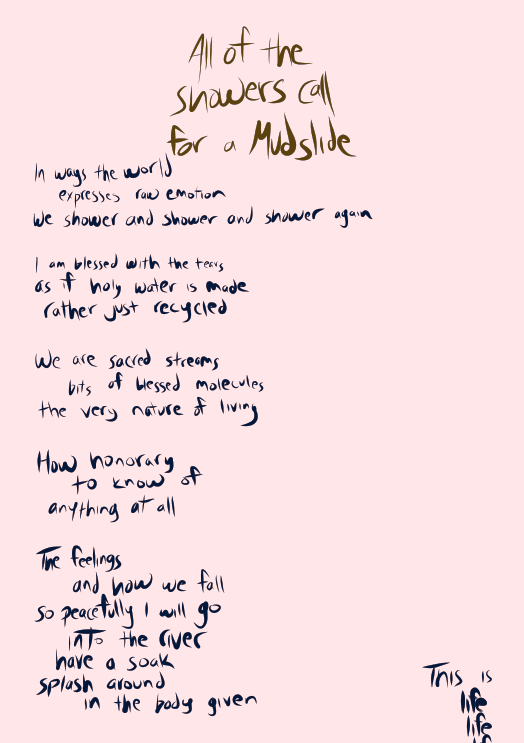 All of the
showers call
for a Mudslide
In ways the world
expresses raw emotion
We shower and shower and shower again
I am blessed with the tears
as if holy water is made
rather just recycled
We are sacred streams
bits of blessed molecules
the very nature of living
How honorary
to know of
anything at all
The feelings
and how we fall
so peacefully I will go
into the river
have a soak
splash around
in the body given
This is
life
life